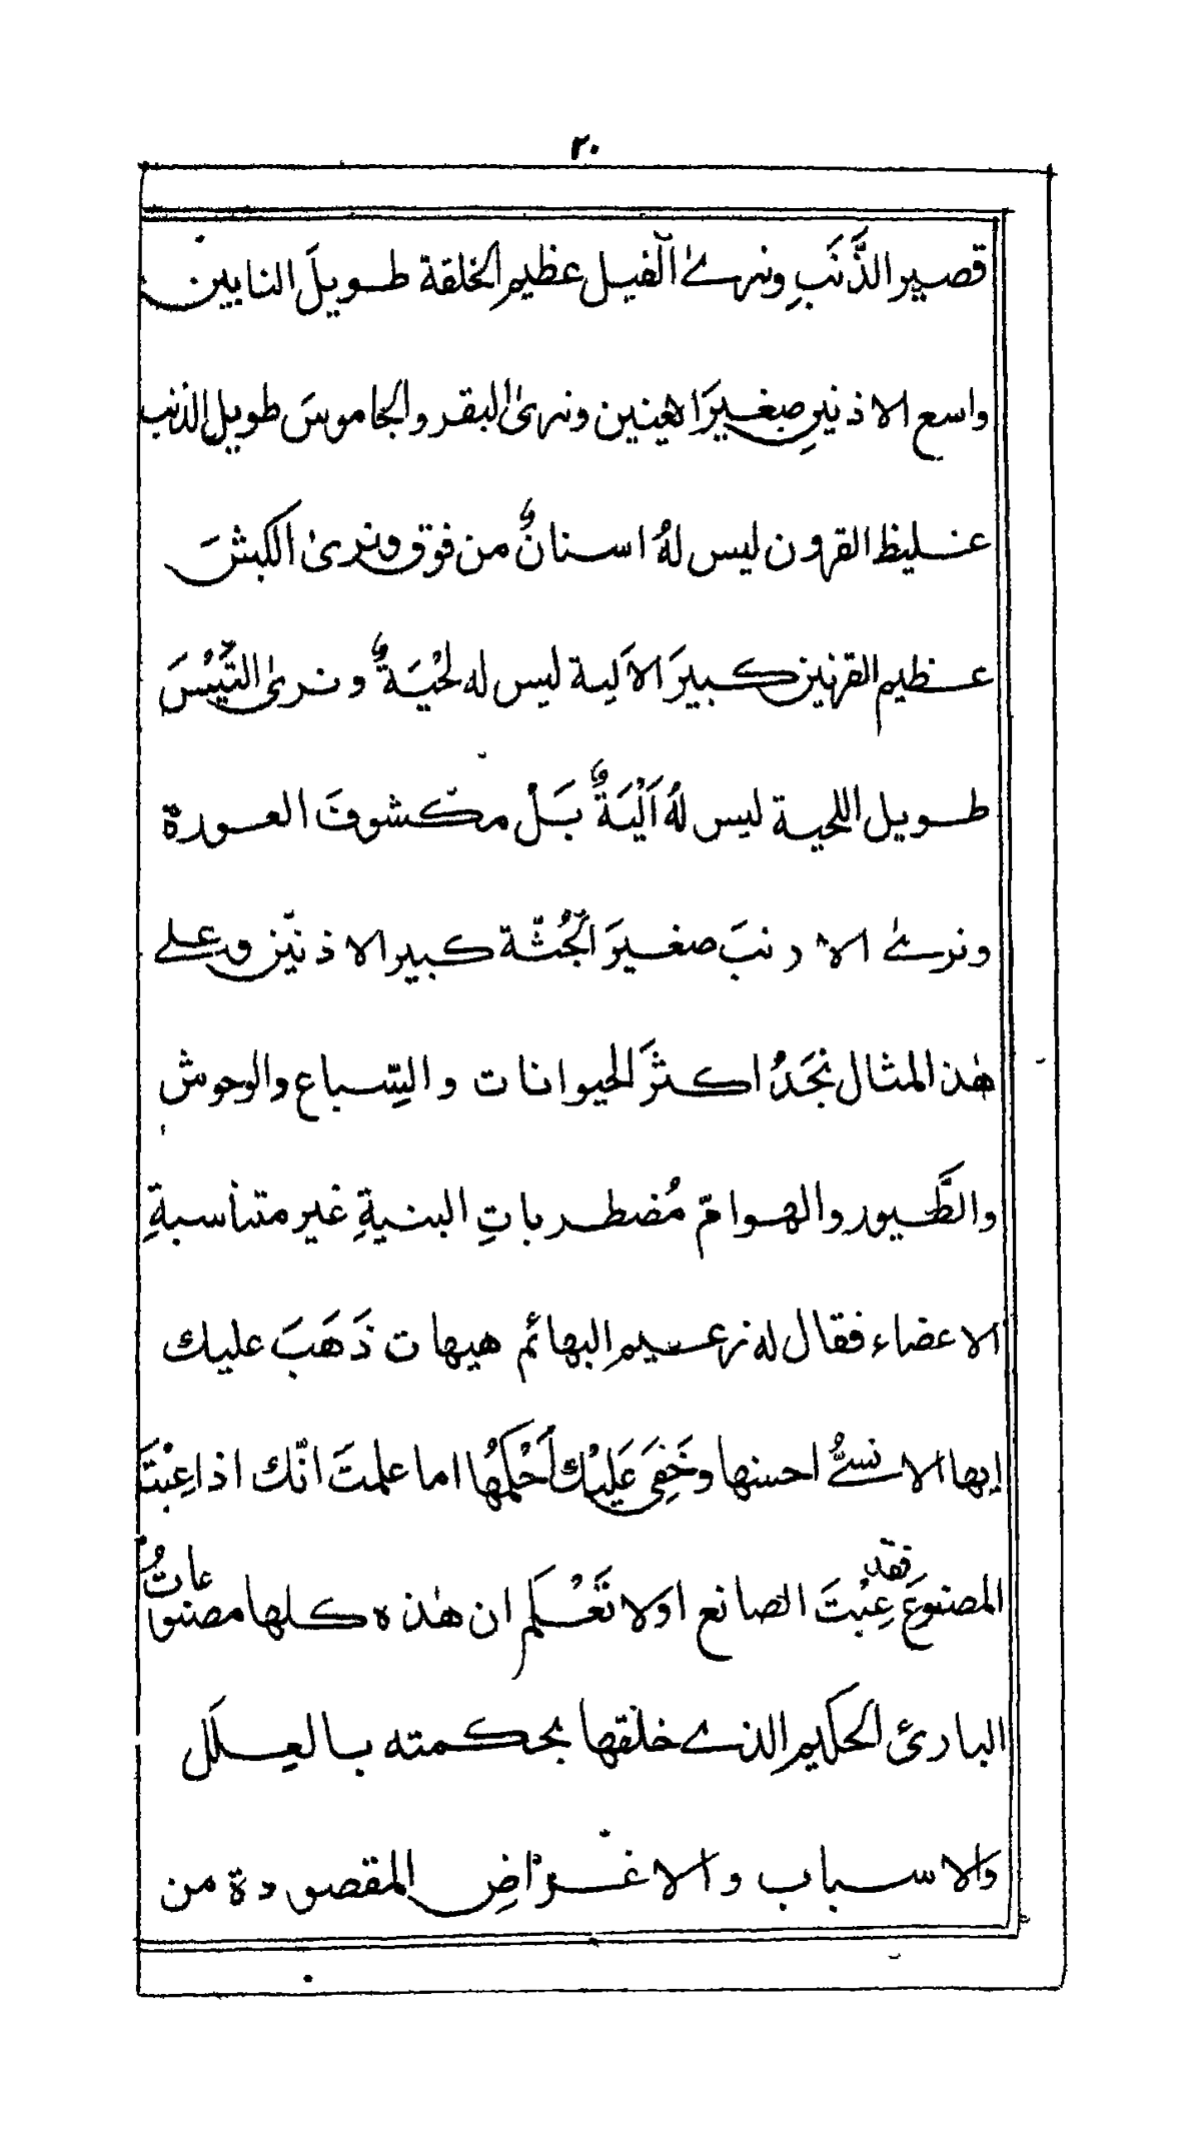 ٢٠
قصير الذَّنَبِ ونرىٰ الفيل عظيم الخلقة طويلَ النابين
واسع الاذنينِ صغيرَ العينين ونرىٰ البقر والجاموسَ طويل الذنب
غليظ القرون ليس لهُ اسنانٌ من فوق ونرىٰ الكبشَ
عظيم القرنين كبيرَ الاَلية ليس له لحْيَةٌ ونرىٰ التَّيْسَ
طويل اللحية ليس لهُ اَلْيَةٌ بَلْ مكشوفَ العورة
ونرىٰ الارنبَ صغيرَ الجُثّة كبير الاذنين وعلى
هٰذا المثال نجَدُ اكثرَ الحيوانات والسِّباع والوحوش
والطَّيور والهوامّ مُضطرباتِ البنيةِ غير متناسبةِ
الاعضاء فقال له زعيم البهائم هيهات ذَهَبَ عليك
ايها الانسىُّ احسنها وخَفِىَ عَليْك اَحْكمُها اما علمتَ انّك اذا عِبْتَ
المصنوعَ فقد عِبْتَ الصانع اولا تَعْلم ان هٰذه كلها مصنوعاتُ
البارئ الحكيم الذى خلقها بحكمته بالعِلَل
والاسباب والاغراضِ المقصودة من